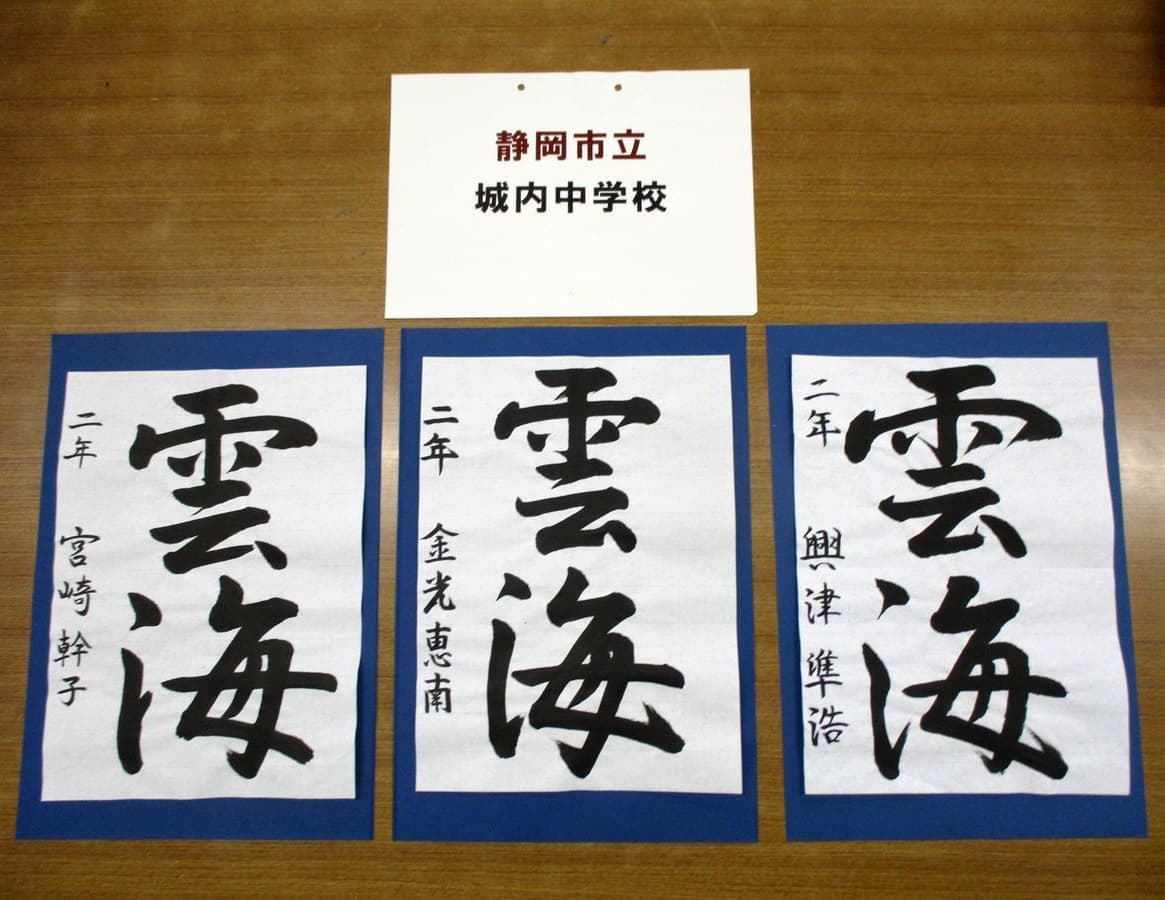 静岡市立
城内中学校
雲海
二年 興津準浩
雲海
二年 金光恵南
雲海
二年 宮崎幹子